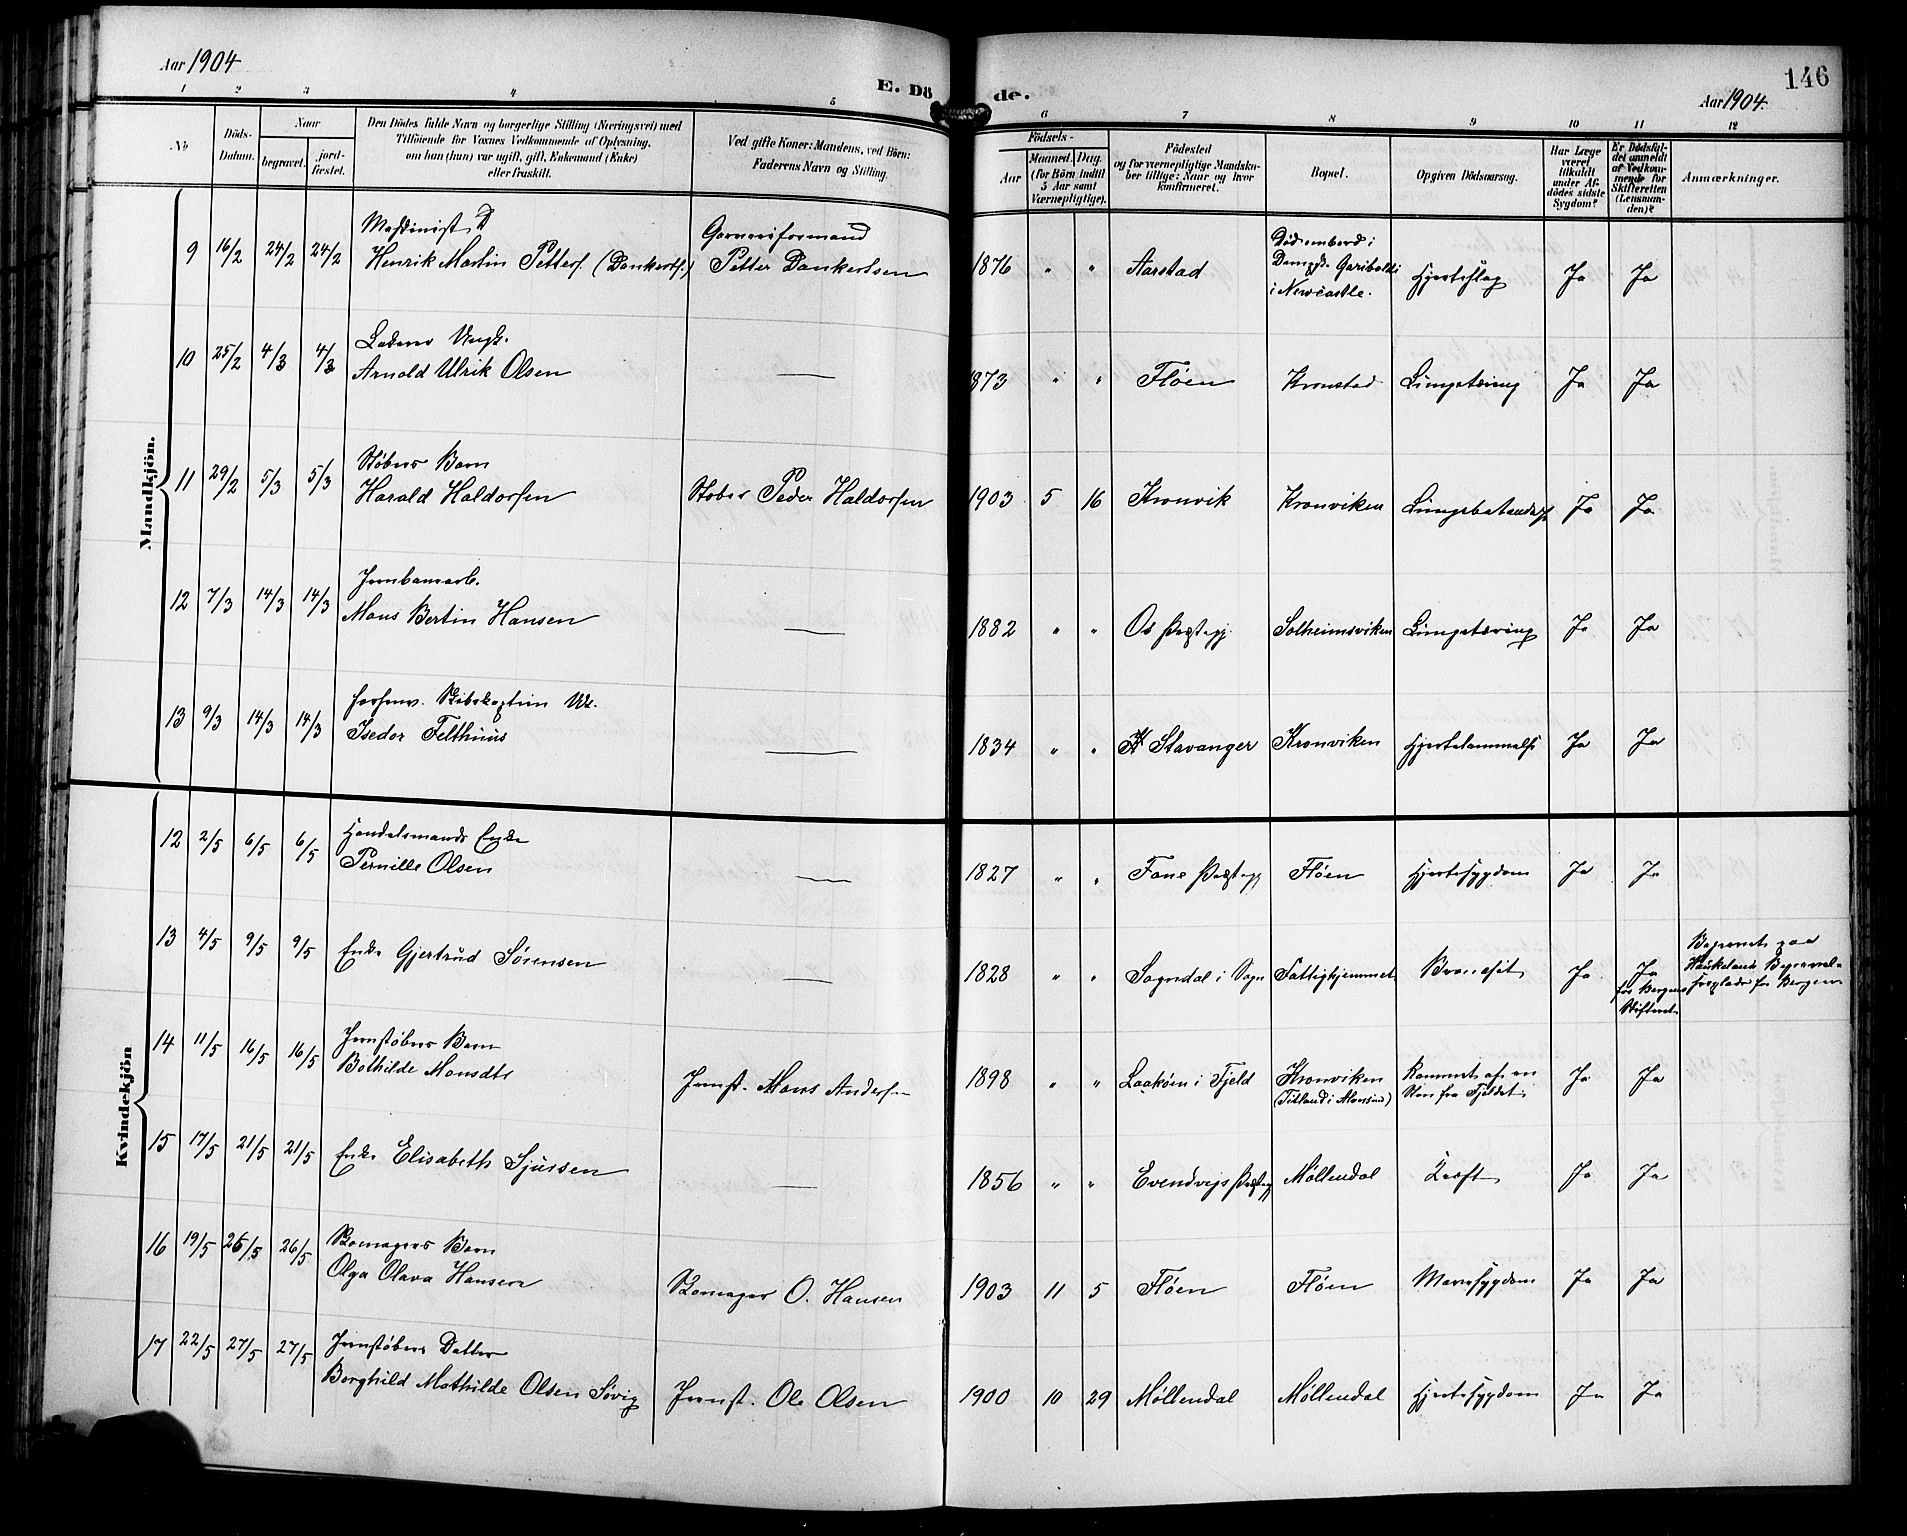 Aar 1904
E. Dö
de.
146
Aar 1904.
1 2 3 4 5
6 7 8 9 10 11 12
No
Döds-
Datum.
Naar
begravet.
jord-
fæstet.
Den Dödes fulde Navn og borgerlige Stilling (Næringsvei) med
Tilföiende for Voxnes Vedkommende af Oplysning,
om han (hun) var ugift, gift, Enkemand (Enke)
eller fraskilt.
Ved gifte Koner: Mandens, ved Börn:
Faderens Navn og Stilling.
Födsels-
Aar
Maaned. Dag.
(for Börn indtil
5 Aar samt
Værnepligtige).
Födested
og for værnepligtige Mandskaber
tillige: Naar og hvor
konfirmeret.
Bopæl.
Opgiven Dödsaarsag.
Har Læge
været
tilkaldt
under Afdödes
sidste
Sygdom?
Er Dödsfaldet
anmeldt
af Vedkommende
for
Skifteretten
(Lensmanden)?
Anmærkninger.
Mandkjön.
Maskinist
9 16/2 24/2 24/2 Henrik Martin Petters. (Dankerts.)
Garveriformand
Petter Dankertsen
1876 " " Aarstad
Död ombord i
Dampsk. Garibaldi
i Newcastle.
Hjerteslag Ja Ja
10 25/2 4/3 4/3
Arnold Ulrik Olsen — 1873 " " Flöen Kronstad Lungetæring Ja Ja
Støbers Barn
11 29/2 5/3 5/3 Harald Haldorsen Støber Peder Haldorsen 1903 5 16 Kronvik Kronviken Lungebetændelse Ja Ja
Jernbanearb.
12 7/3 14/3 14/3 Mons Bertin Hansen — 1882 " " Os Præstegj. Solheimsviken Lungetæring Ja Ja
forhenv. Skibskaptein
13 9/3 14/3 14/3 Isedor Felthuus — 1834 " " Stavanger Kronviken Hjertelammelse Ja Ja
Kvindekjön
Handelsmands Enke
12 2/5 6/5 6/5 Pernille Olsen — 1827 " " Fane Præstegj Flöen Hjertesygdom Ja Ja
13 4/5 9/5 9/5 Enke Gjertrud Sörensen — 1828 " " Sogndal i Sogn Fattighjemmet Ja Ja
for Bergens
Skifteret
Begravet paa
Haukelands Begravel-
sesplads for Bergen
Jernstøbers Barn
14 11/5 16/5 16/5 Bothilde Monsdtr Jernst. Mons Anders. 1898 " " i Fjeld Kronviken
Rammet af en
Sten fra Fjeldet Ja Ja
15 17/5 21/5 21/5 Enke Elisabeth Sjursen — 1856 " " Evendvigs Præstegj Møllendal Kræft Ja Ja
Skomagers Barn
16 19/5 26/5 26/5 Olga Olava Hansen Skomager O. Hansen 1903 11 5 Flöen Flöen Mavesygdom Ja Ja
Jernstøbers Datter
17 22/5 27/5 27/5 Borghild Mathilde Olsen Søvig Jernst. Ole Olsen 1900 10 29 Møllendal Møllendal Hjertesygdom Ja Ja